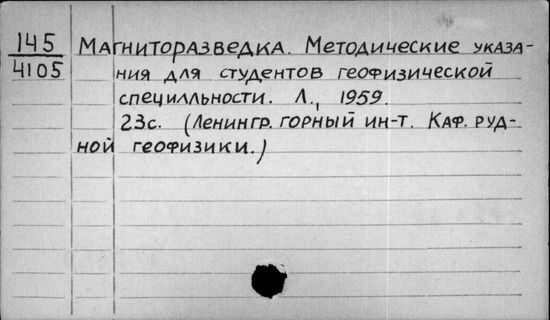 145 Магниторазведка. Методические указа-
4105 ния для студентов геофизической
специлльности. Л., 1959.
23с. (Ленингр. горный ин-т. Каф. руд-
ной геофизики.)